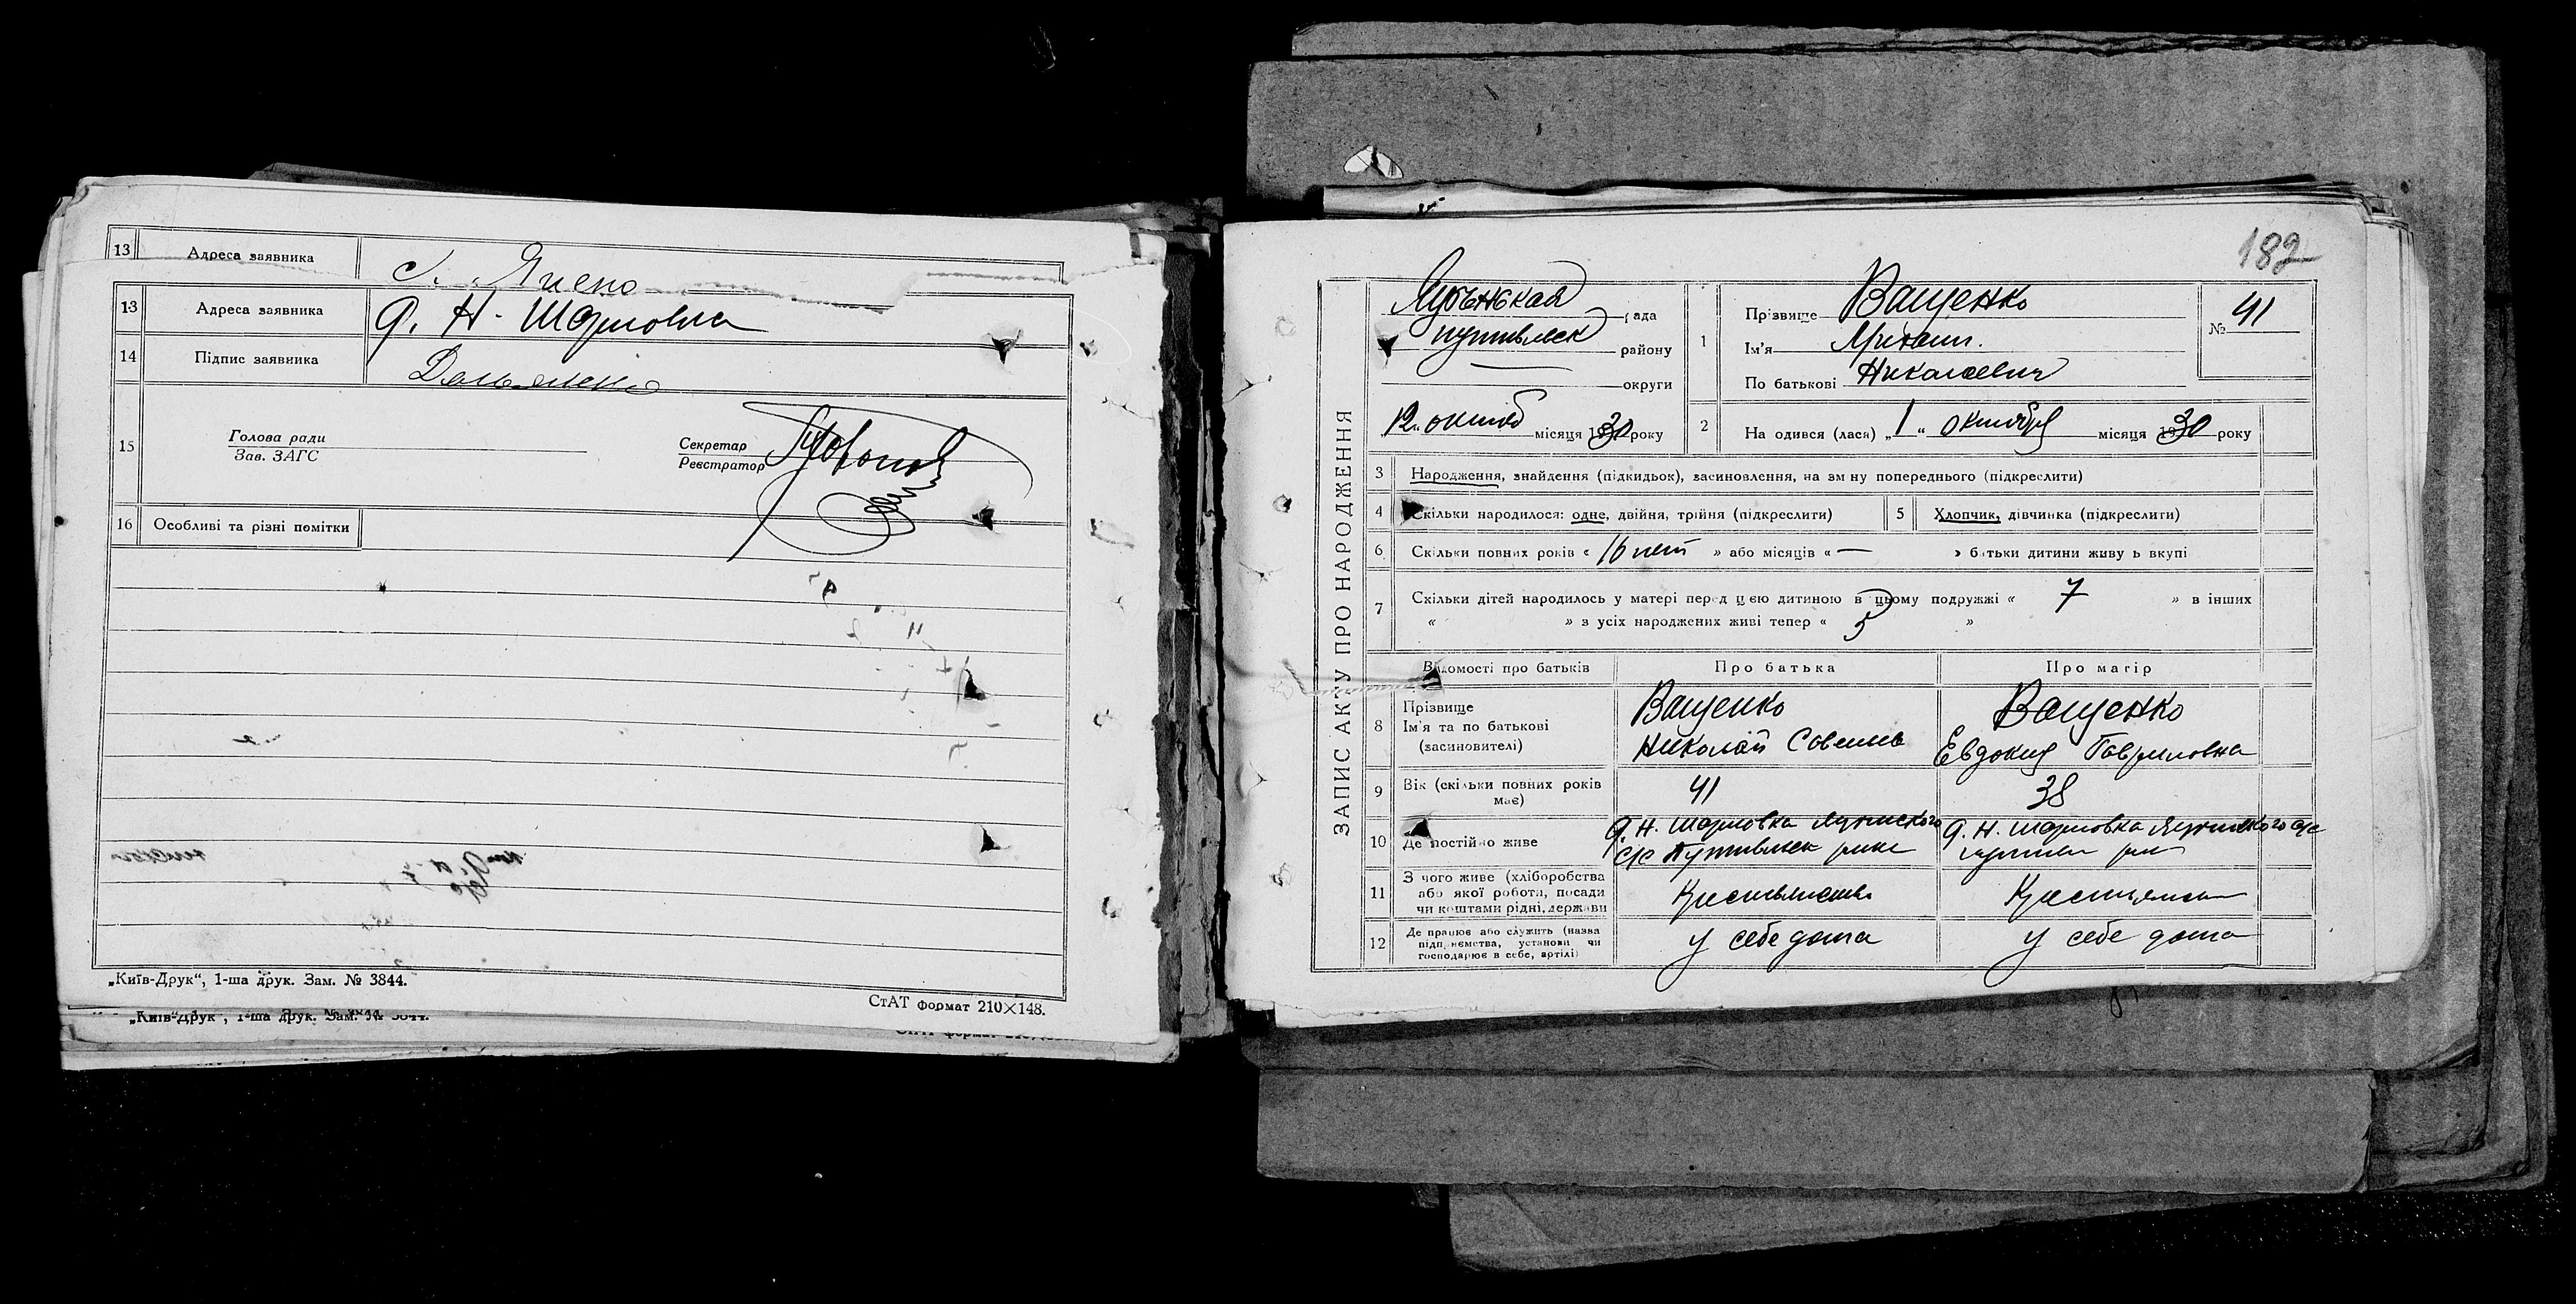 13 Адреса заявника
с. Яцено
13 Адреса заявника д. Н- Шарповка
14 Підпис заявника
15 Голова ради
Зав. ЗАГС
Секретар
Реєстратор
16 Особливі та різні помітки
„Київ-Друк“, 1-ша друк. Зам. № 3844.
СтАТ формат 210×148.
182
ЗАПИС АКТУ ПРО НАРОДЖЕННЯ
рада
путивльск району
округи
12 октяб місяця 1930 року
1 Прізвище Ващенко
Ім'я Михаил.
По батькові Николаевич
№ 41
2 На одився (лася) „1“ октября місяця 1930 року
3 Народження, знайдення (підкидьок), засиновлення, на зм ну попереднього (підкреслити)
4 Скільки народилося: одне, двійня, трійня (підкреслити)
5 Хлопчик, дівчинка (підкреслити)
6 Скільки повних років « 16 лет » або місяців « — » батьки дитини живу ь вкупі
7 Скільки дітей народилось у матері перед цією дитиною в цьому подружжі « 7 » в інших
« » з усіх народжених живі тепер « 5 »
Відомості про батьків Про батька Про матір
8 Прізвище
Ім'я та по батькові
(засиновителі)
Ващенко
Николай
Ващенко
Евдокия Гавриловна
9 Вік (скільки повних років має)
41
38
10 Де постійно живе
д. Н. Шарповка
с/с Путивльск
д. Н. Шарповка
11 З чого живе (хліборобства
або якої роботи, посади
чи коштами рідні, держави
12 Де працює або служить (назва
підприємства, установи чи
господарює в себе, артілі)
у себе дома
у себе дома